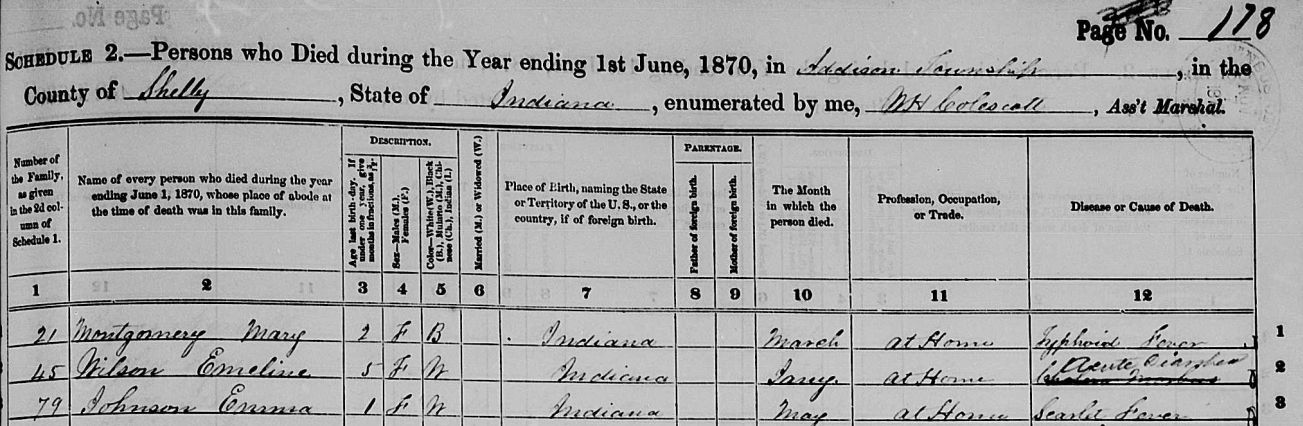 Page No. 178
SCHEDULE 2.—Persons who Died during the Year ending 1st June, 1870, in Addison Township, in the
County of Shelly, State of Indiana, enumerated by me, WH Colescott, Ass't Marshal.
Number of the Family, as given in the 2d column of Schedule 1.
Name of every person who died during the year ending June 1, 1870, whose place of abode at the time of death was in this family.
DESCRIPTION.
Age last birth-day. If under one year, give months in fractions, as 3/12.
Sex—Males (M.), Females (F.)
Color—White (W.), Black (B.), Mulatto (M.), Chinese (Ch.), Indian (I.)
Married (M.) or Widowed (W.)
Place of Birth, naming the State or Territory of the U. S., or the country, if of foreign birth.
PARENTAGE.
Father of foreign birth.
Mother of foreign birth.
The Month in which the person died.
Profession, Occupation, or Trade.
Disease or Cause of Death.
1 2 3 4 5 6 7 8 9 10 11 12
21 Montgomery Mary 2 F B Indiana March at Home Typhoid Fever 1
45 Wilson Emeline 5 F W Indiana Jany. at Home Acute Diarrhea Cholera Morbus 2
79 Johnson Emma 1 F W Indiana May at Home Scarlet Fever 3